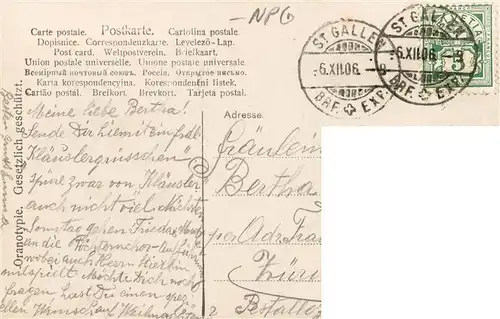 -NPG
Carte postale. Postkarte. Cartolina postale.
Dopisnice. Correspondenzkarte. Levelező-Lap.
Post card. Weltpostverein. Briefkaart.
Union postale universelle. Unione postale universale.
Всемірный почтовый союзъ. Россія. Открытое письмо.
Karta korespondencyjna. Korespondenční listek.
Cartão postal. Brevkort. Brevkort. Tarjeta postal.
ST. GALLEN
-6.XII.06.-8
BRF. EXP.
ST. GALLEN
-6.XII.06.-8
BRF. EXP.
Oranotypie. Gesetzlich geschützt.
Meine liebe Bertha!
Sende Dir hiemit ein
Kläuslergrüsschen
spüre zwar von Kläusler
auch nicht viel. Nächsten
Sonntag gehen Frieda
an die Aufführung
wobei auch Herr Hierbin
mitspielt. Möchte Dich noch
fragen hast Du einen spez
ellen Wunsch auf Weihnachten
Adresse.
Fräulein
Bertha
per Adr. Frau
Zürich
Pestalozzi
2